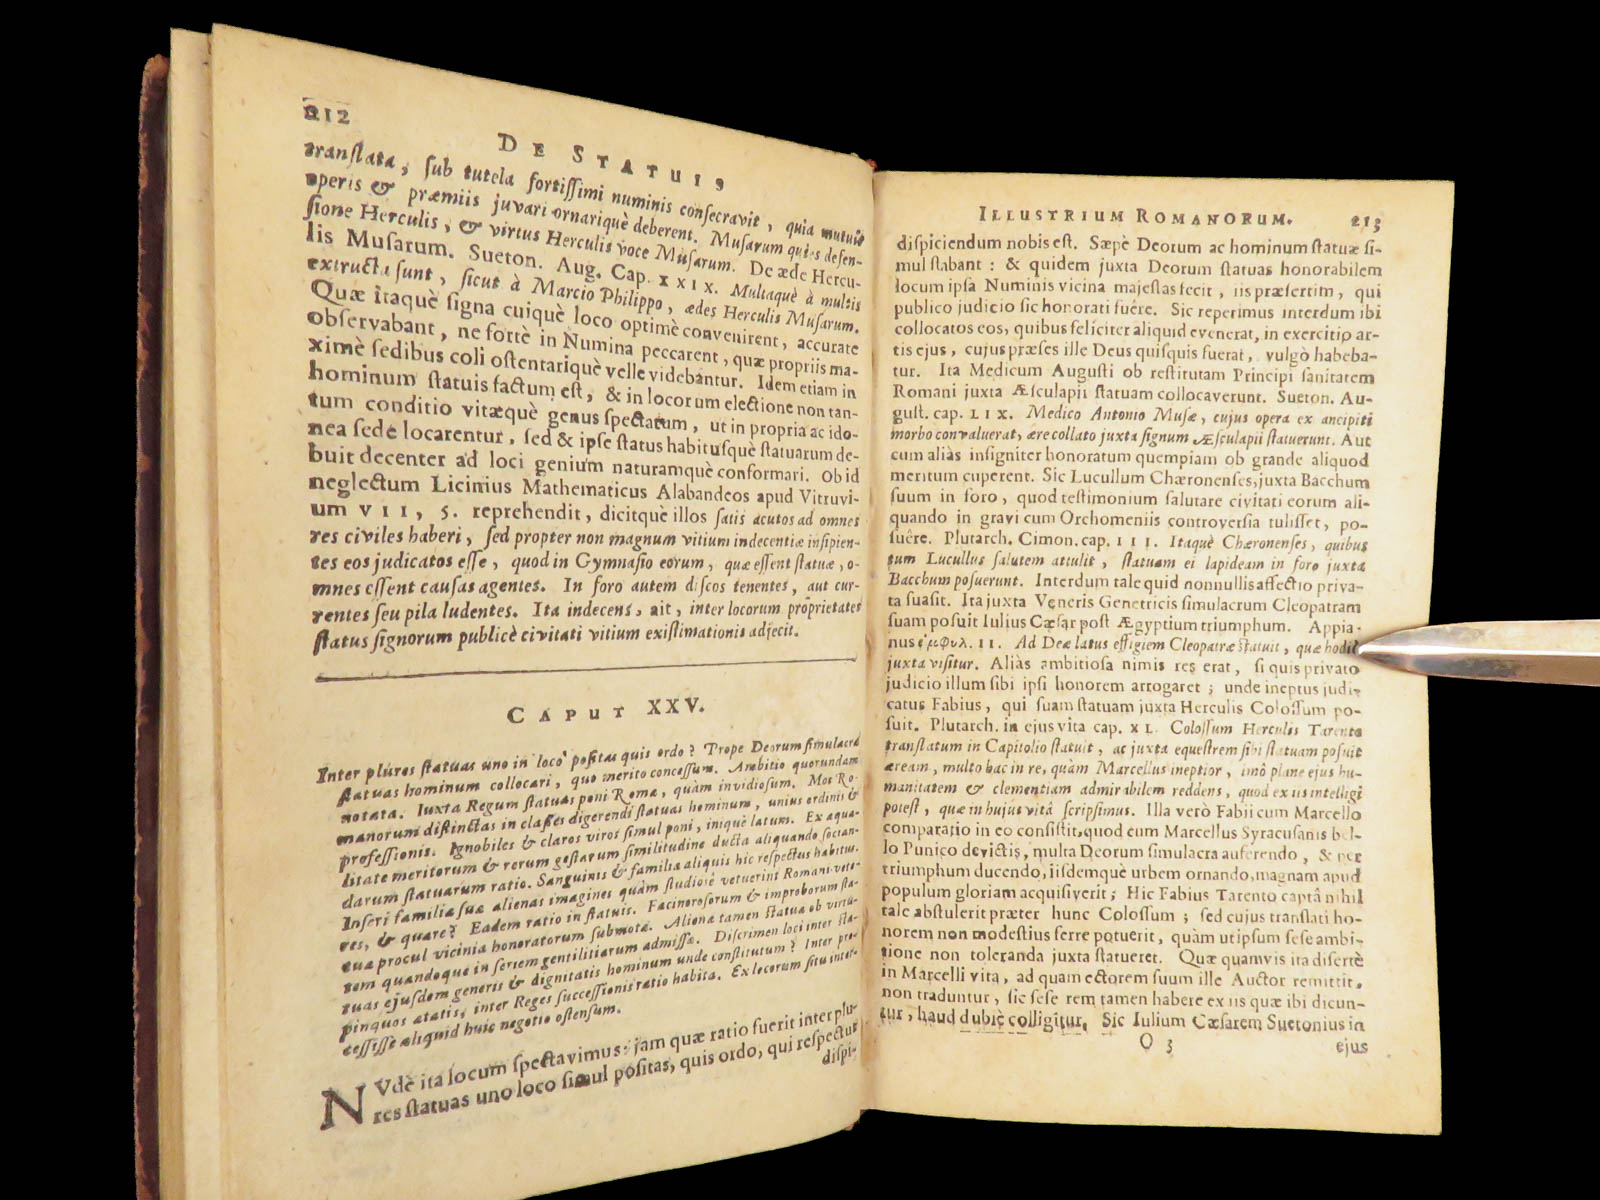 212
DE STATUIS
translata, sub tutela fortissimi numinis consecravit, quia mutuis
operis & præmiis juvari ornariquè deberent. Musarum quies defen-
sione Herculis, & virtus Herculis voce Musarum. De æde Hercu-
lis Musarum. Sueton. Aug. Cap. XXIX. Multaquè à multis
extructa sunt, sicut à Marcio Philippo, ædes Herculis Musarum.
Quæ itaquè signa cuiquè loco optimè convenirent, accurate
observabant, ne fortè in Numina peccarent, quæ propriis ma-
ximè sedibus coli ostentariquè velle videbantur. Idem etiam in
hominum statuis factum est, & in locorum electione non tan-
tum conditio vitæquè genus spectatum, ut in propria ac ido-
nea sede locarentur, sed & ipse status habitusquè statuarum de-
buit decenter ad loci genium naturamquè conformari. Ob id
neglectum Licinius Mathematicus Alabandeos apud Vitruvi-
um VII, 5. reprehendit, dicitquè illos satis acutos ad omnes
res civiles haberi, sed propter non magnum vitium indecentiæ insipien-
tes eos judicatos esse, quod in Gymnasio eorum, quæ essent statuæ, o-
mnes essent causas agentes. In foro autem discos tenentes, aut cur-
rentes seu pila ludentes. Ita indecens, ait, inter locorum proprietates
status signorum publicè civitati vitium existimationis adjecit.
CAPUT XXV.
Inter plures statuas uno in loco positas quis ordo? Prope Deorum simulacra
statuas hominum collocari, quo merito concessum. Ambitio quorundam
notata. Iuxta Regum statuas poni Romæ, quàm invidiosum. Mos Ro-
manorum distinctas in classes digerendi statuas hominum, unius ordinis &
professionis. Ignobiles & claros viros simul poni, iniquè latum. Ex aqua-
litate meritorum & rerum gestarum similitudine ducta aliquando socian-
darum statuarum ratio. Sanguinis & familiæ aliquis hic respectus habitus.
Inseri familiæ suæ alienas imagines quàm studiosè vetuerint Romani vete-
res, & quare? Eadem ratio in statuis. Facinorosorum & improborum sta-
tuæ procul vicinia honoratorum submotæ. Aliena tamen statua ob virtu-
tem quandoque in seriem gentilitiarum admissæ. Discrimen loci inter sta-
tuas ejusdem generis & dignitatis hominum unde constitutum? Inter pro-
pinquos ætatis, inter Reges successionis ratio habita. Ex locorum situ inter-
cessisse aliquid huic negotio ostensum.
NVdè ita locum spectavimus: jam quæ ratio fuerit inter plu-
res statuas uno loco simul positas, quis ordo, qui respectus
dispi-
ILLUSTRIUM ROMANORUM. 213
dispiciendum nobis est. Sæpè Deorum ac hominum statuæ si-
mul stabant: & quidem juxta Deorum statuas honorabilem
locum ipsa Numinis vicina majestas fecit, iis præsertim, qui
publico judicio sic honorati fuêre. Sic reperimus interdum ibi
collocatos eos, quibus feliciter aliquid evenerat, in exercitio ar-
tis ejus, cujus præses ille Deus quisquis fuerat, vulgò habeba-
tur. Ita Medicum Augusti ob restitutam Principi sanitatem
Romani juxta Æsculapii statuam collocaverunt. Sueton. Au-
gust. cap. LIX. Medico Antonio Musæ, cujus opera ex ancipiti
morbo convaluerat, ære collato juxta signum Æsculapii statuerunt. Aut
cum aliàs insigniter honoratum quempiam ob grande aliquod
meritum cuperent. Sic Lucullum Chæronenses, juxta Bacchum
suum in foro, quod testimonium salutare civitati eorum ali-
quando in gravi cum Orchomeniis controversia tulisset, po-
suêre. Plutarch. Cimon. cap. III. Itaquè Chæronenses, quibus
tum Lucullus salutem attulit, statuam ei lapideam in foro juxta
Bacchum posuerunt. Interdum tale quid nonnullis affectio priva-
ta suasit. Ita juxta Veneris Genetricis simulacrum Cleopatram
suam posuit Iulius Cæsar post Ægyptium triumphum. Appia-
nus ἐμφυλ. II. Ad Deæ latus effigiem Cleopatræ statuit, quæ hodiè
juxta visitur. Aliàs ambitiosa nimis res erat, si quis privato
judicio illum sibi ipsi honorem arrogaret; unde ineptus judi-
catus Fabius, qui suam statuam juxta Herculis Colossum po-
suit. Plutarch. in ejus vita cap. XL. Colossum Herculis Tarento
translatum in Capitolio statuit, ac juxta equestrem sibi statuam posuit
æream, multo hac in re, quàm Marcellus ineptior, imò plane ejus hu-
manitatem & clementiam admirabilem reddens, quod ex iis intelligi
potest, quæ in hujus vitâ scripsimus. Illa verò Fabii cum Marcello
comparatio in eo consistit, quod cum Marcellus Syracusanis bel-
lo Punico devictis, multa Deorum simulacra auferendo, & per
triumphum ducendo, iisdemquè urbem ornando, magnam apud
populum gloriam acquisiverit; Hic Fabius Tarento captâ nihil
tale abstulerit præter hunc Colossum; sed cujus translati ho-
norem non modestius ferre potuerit, quàm ut ipsum sese ambi-
tione non toleranda juxta statueret. Quæ quamvis ita disertè
in Marcelli vita, ad quam ectorem suum ille Auctor remittit,
non traduntur, sic sese rem tamen habere ex iis quæ ibi dicun-
tur, haud dubiè colligitur. Sic Iulium Cæsarem Suetonius in
O 3 ejus